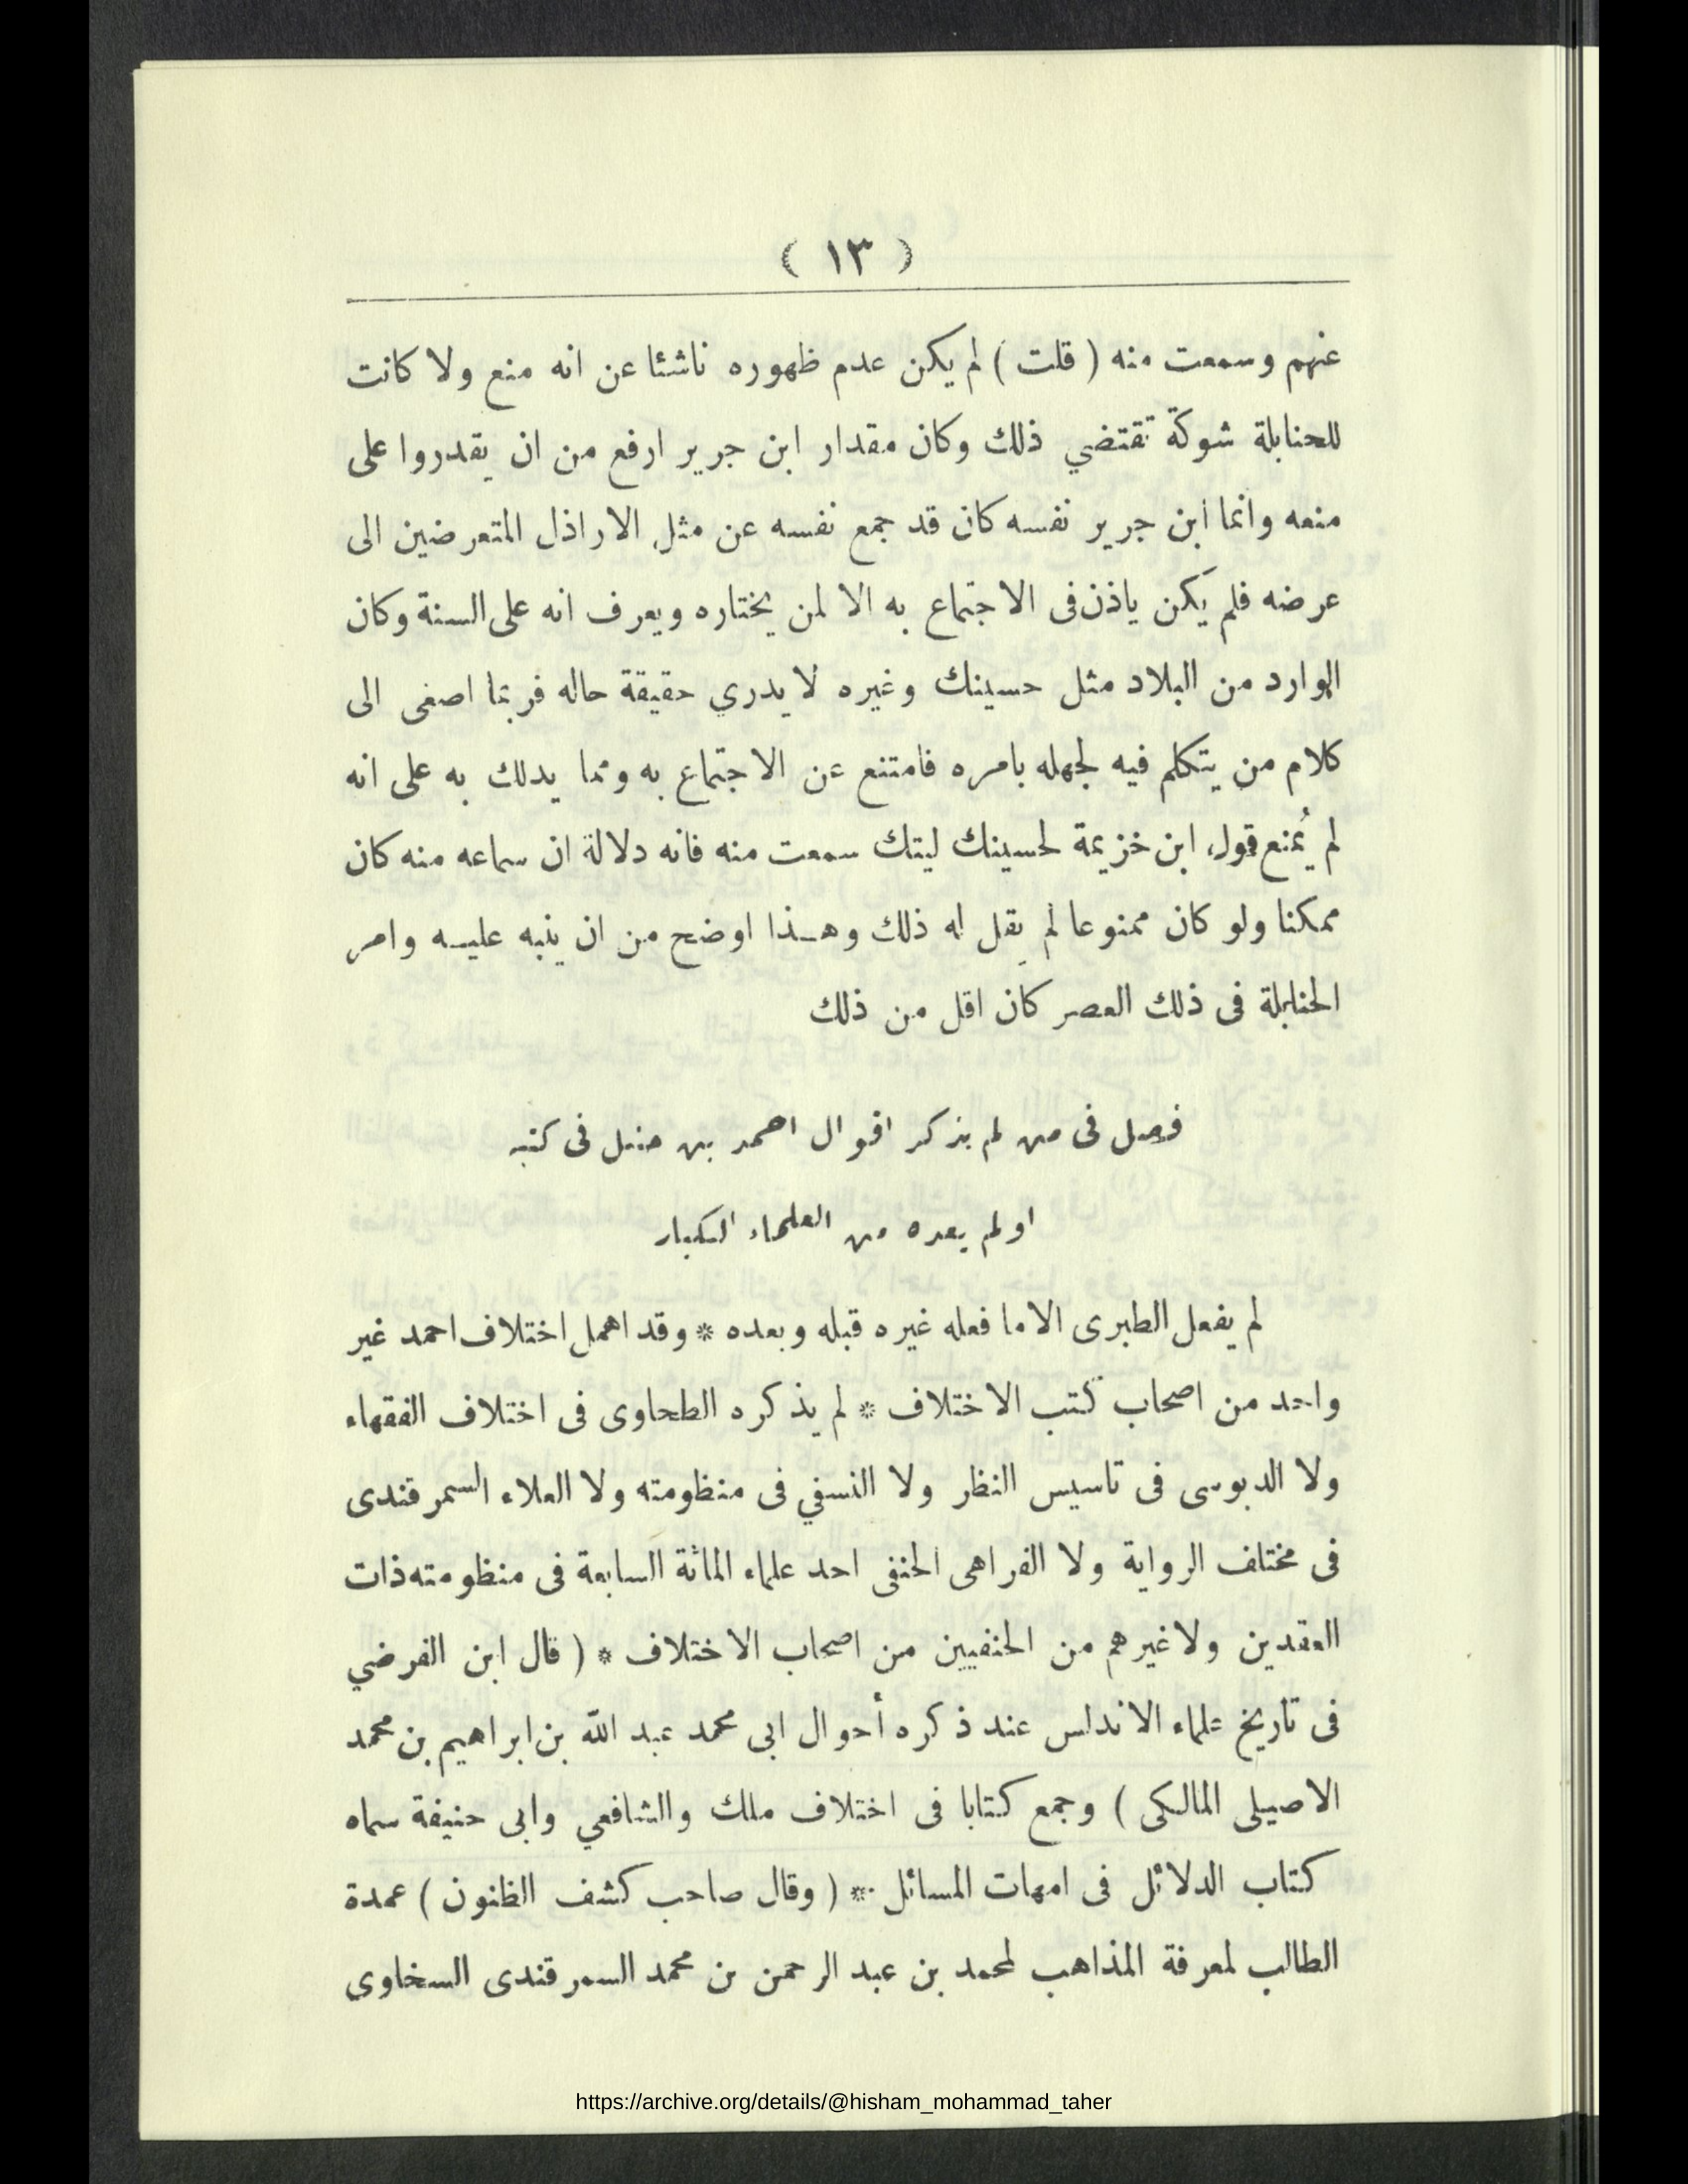 ( ١٣ )
عنهم وسمعت منه ( قلت ) لم يكن عدم ظهوره ناشئا عن انه منع ولا كانت
للحنابلة شوكة تقتضي ذلك وكان مقدار ابن جرير ارفع من ان يقدروا على
منعه وانما ابن جرير نفسه كان قد جمع نفسه عن مثل الاراذل المتعرضين الى
عرضه فلم يكن ياذن فى الاجتماع به الا لمن يختاره ويعرف انه على السنة وكان
الوارد من البلاد مثل حسينك وغيره لا يدري حقيقة حاله فربما اصغى الى
كلام من يتكلم فيه لجهله بامره فامتنع عن الاجتماع به ومما يدلك به على انه
لم يُمنع قول ابن خزيمة لحسينك ليتك سمعت منه فانه دلالة ان سماعه منه كان
ممكنا ولو كان ممنوعا لم يقل له ذلك وهـذا اوضح من ان ينبه عليه وامر
الحنابلة فى ذلك العصر كان اقل من ذلك
فصل فى من لم يذكر اقوال احمد بن حنبل فى كتبه
او لم يعده من العلماء الكبار
لم يفعل الطبرى الا ما فعله غيره قبله وبعده * وقد اهمل اختلاف احمد غير
واحد من اصحاب كتب الاختلاف * لم يذكره الطحاوى فى اختلاف الفقهاء
ولا الدبوسى فى تاسيس النظر ولا النسفي فى منظومته ولا العلاء السمرقندى
فى مختلف الرواية ولا الفراهى الحنفى احد علماء المائة السابعة فى منظومته ذات
العقدين ولا غيرهم من الحنفيين من اصحاب الاختلاف * ( قال ابن الفرضي
فى تاريخ علماء الاندلس عند ذكره أحوال ابى محمد عبد اللّه بن ابراهيم بن محمد
الاصيلى المالكى ) وجمع كتابا فى اختلاف ملك والشافعي وابى حنيفة سماه
كتاب الدلائل فى امهات المسائل * ( وقال صاحب كشف الظنون ) عمدة
الطالب لمعرفة المذاهب لمحمد بن عبد الرحمن بن محمد السمرقندى السخاوى
https://archive.org/details/@hisham_mohammad_taher